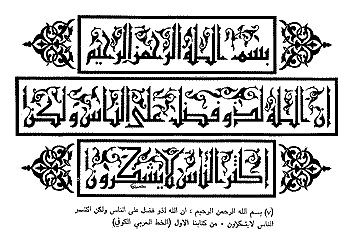 بسم الله الرحمن الرحيم
ان الله لذو فضل على الناس ولكن
اكثر الناس لا يشكرون
(٧) بسم الله الرحمن الرحيم ، ان الله لذو فضل على الناس ولكن اكثر
الناس لايشكرون ٠ من كتابنا الاول (الخط العربي الكوفي)